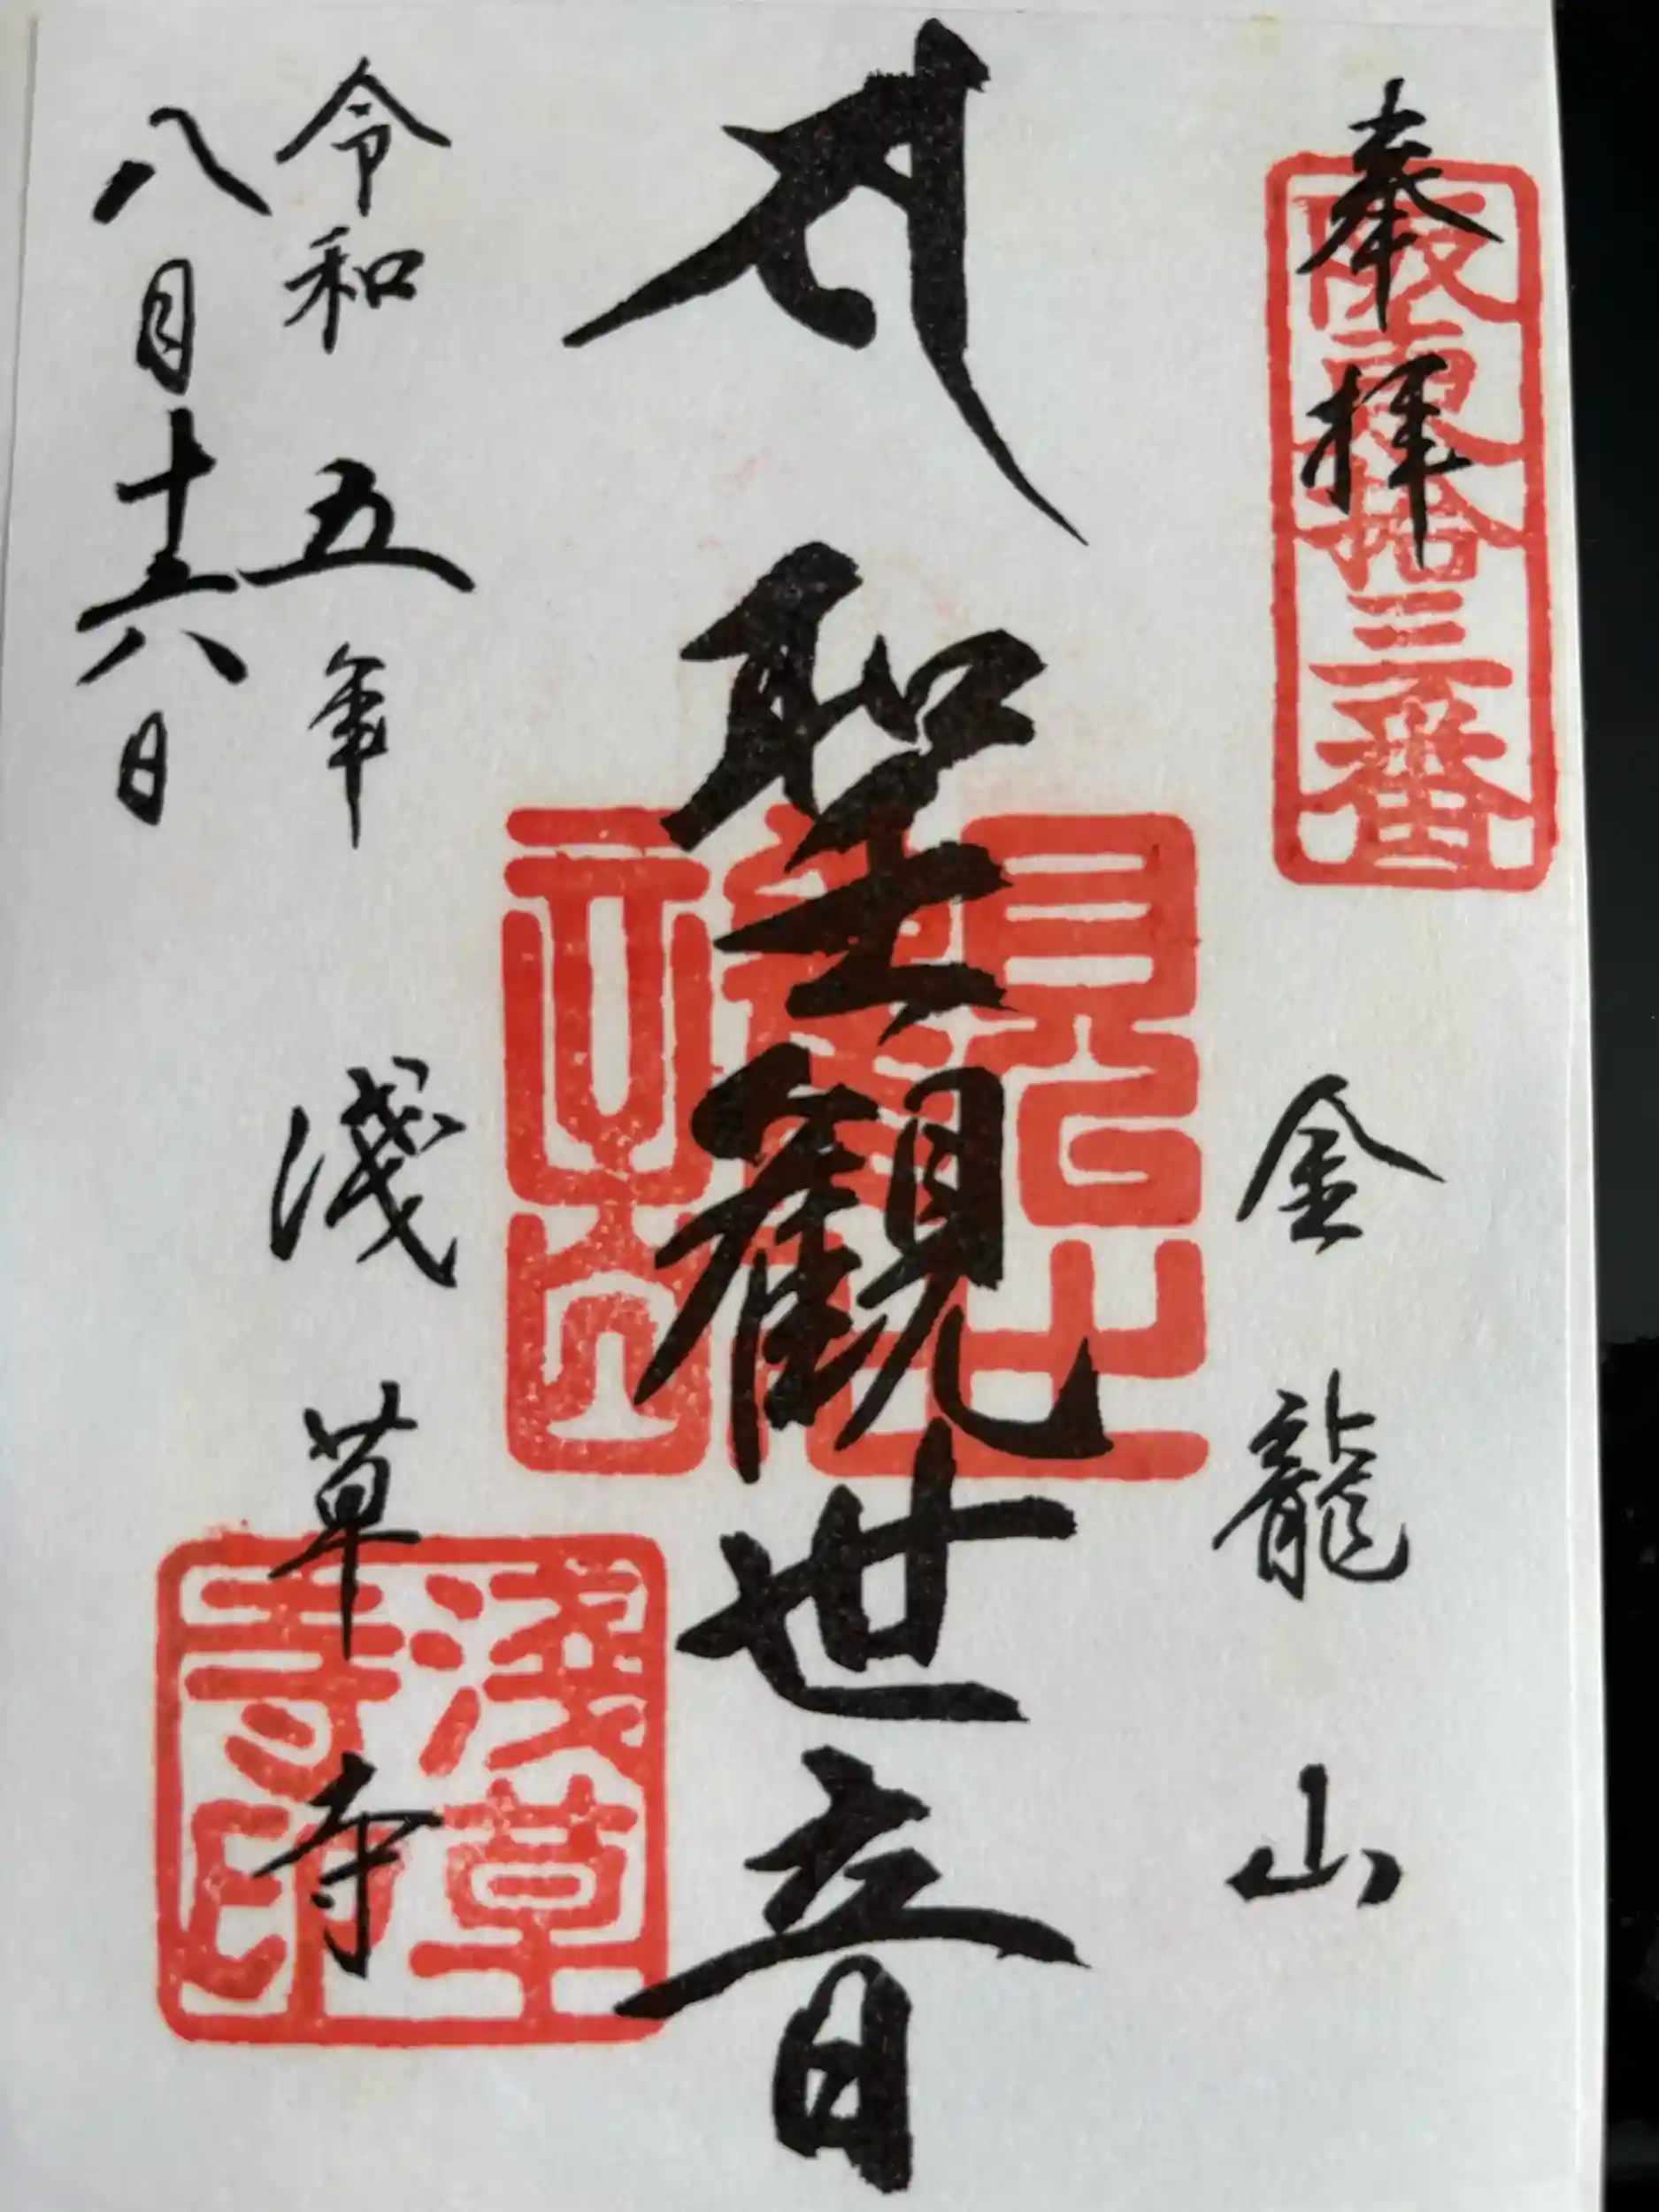 奉拝
阪東拾三番
金龍山
聖観世音
令和五年
八月十六日
淺草寺
淺草寺印